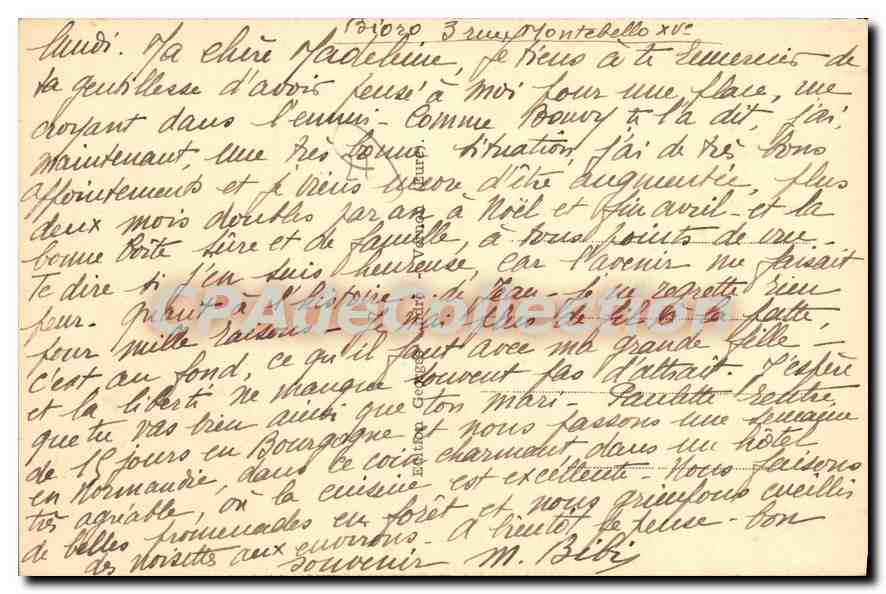 Bioro 3 rue Montebello XVe
lundi. Ma chère Madeleine, je tiens à te remercier de
ta gentillesse d'avoir pensé à moi pour une place, me
croyant dans l'ennui - Comme te l'a dit, j'ai,
maintenant, une très bonne situation, j'ai de très bons
appointements et je viens encore d'être augmentée, plus
deux mois doubles par an à Noël et fin avril - et la
bonne boîte sûre et de famille, à tous points de vue -
Te dire si j'en suis heureuse, car l'avenir me faisait
peur - quant à l'histoire de Jean - je ne regrette rien
pour mille raisons - Je n'ai plus de fil à la patte,
c'est au fond, ce qu'il faut avec ma grande fille -
et la liberté ne manque souvent pas d'attrait. J'espère
que tu vas bien ainsi que ton mari - Paulette rentre
de 15 jours en Bourgogne et nous passons une semaine
en Normandie, dans ce coin charmant, dans un hôtel
très agréable, où la cuisine est excellente - Nous faisons
de belles promenades en forêt et nous grimpons cueillir
des noisettes aux environs - A bientôt je pense - bon
souvenir M. Bibi
Edition Georges Vernon (Eure).
CPADeCollection